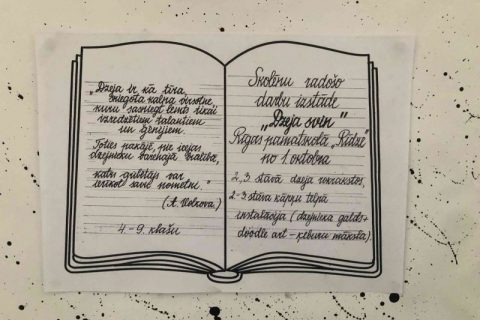 „Dzeja ir kā tīra,
sniegota kalna virsotne,
kuru sasniegt lemts tikai
izredzētiem talantiem
un ģēnijiem.
Toties pakājē, pie ieejas
dzejnieku Valstībā,
katrs gribētājs var
ierīkot savu nometni."
(A. Volkova)
4-9. klašu
Skolēnu radošo
darbu izstāde
„Dzeja svin"
Rīgas pamatskolā „Rīdze"
no 1. oktobra
2., 3. stāvā dzeja uzrakstos,
2-3 stāva kāpņu telpā
instalācija (dzejnieka galds+
doodle art - ķeburu māksla).